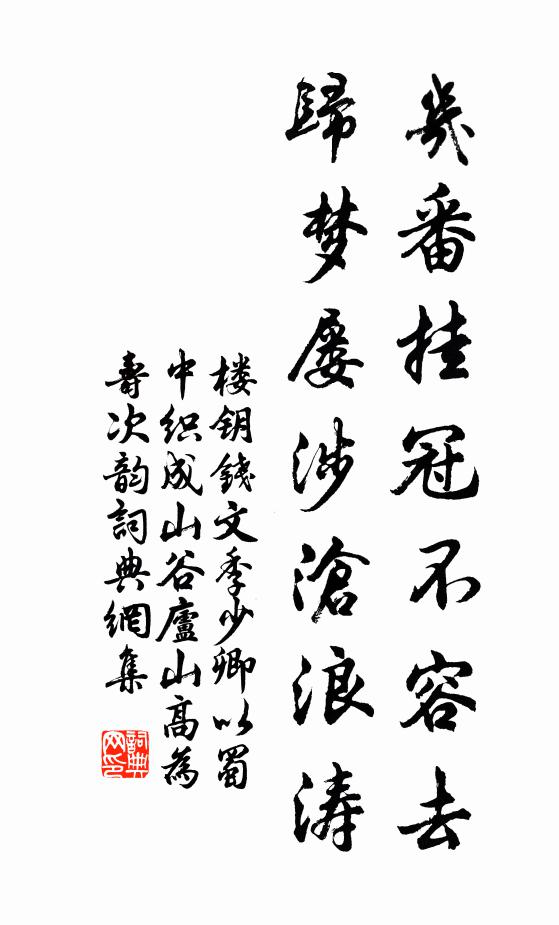 幾番挂冠不容去
歸梦屡涉滄浪涛
楼钥錢文季少卿以蜀
中织成山谷廬山高為
壽次韵詞典網集
詞典
网印